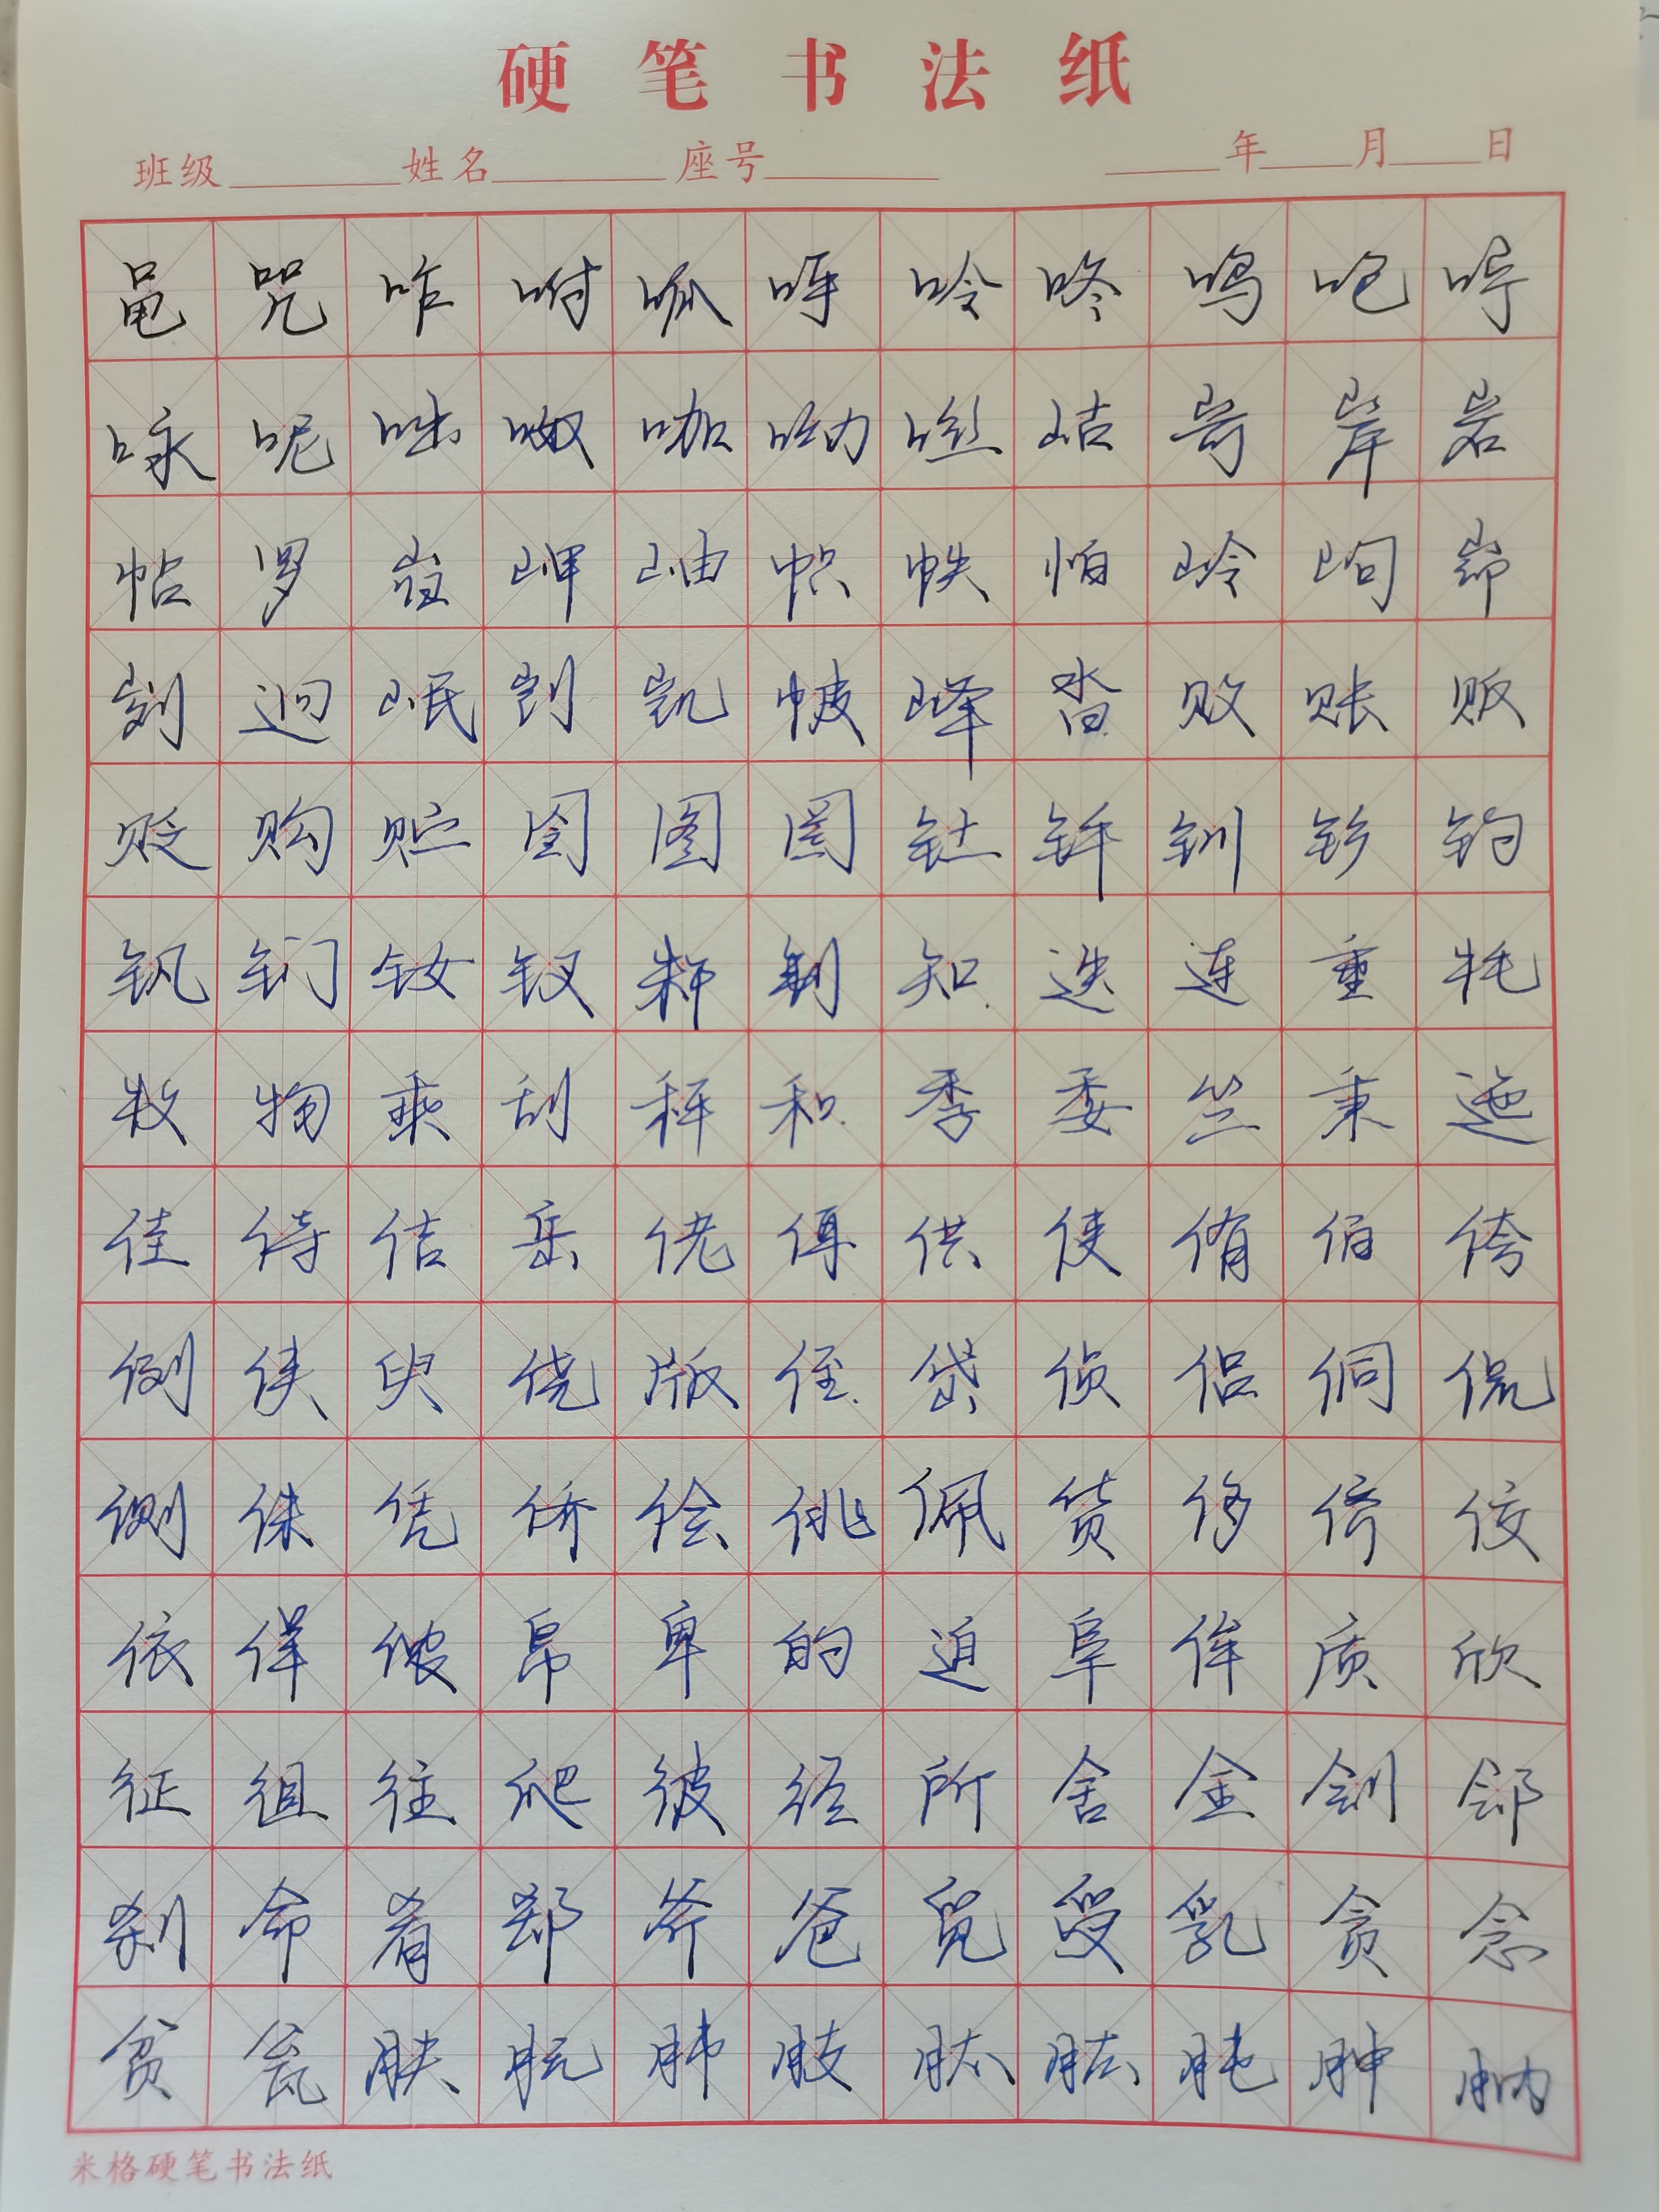 硬笔书法纸
班级 姓名 座号 年 月 日
黾咒咋咐呱呼呤咚鸣咆咛
咏呢咄呶咖呦咝岵岢岸岩
帖罗岿岬岫帜帙帕岭岣峁
刿迥岷剀凯帔峄沓败账贩
贬购贮囹图罔钍钎钏钐钓
钒钔钕钗邾制知迭迮垂牦
牧物乖刮秆和季委竺秉迤
佳侍佶岳佬佴供使侑佰侉
例侠臾侥版侄岱侦侣侗侃
侧侏凭侨侩佻佩货侈侪佼
依佯侬帛卑的迫阜侔质欣
征徂往爬彼径所舍金刽郐
刹命肴郄斧爸觅受乳贪念
贫瓮肤朊肺肢肽肱肫肿肭
米格硬笔书法纸